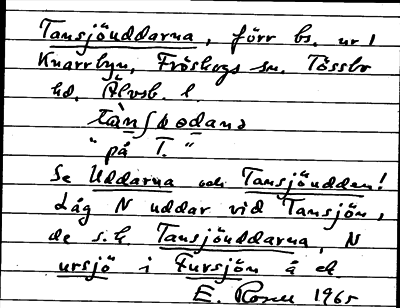 Tansjöuddarna, förr bs. nr 1
Knarrbyn, Fröskogs sn. Tössbo
hd. Älvsb. l.
"på T."
Se Uddarna och Tansjöudden!
Låg N uddar vid Tansjön,
de s.k. Tansjöuddarna, N
ursjö i Fursjön å ek
E. Rosell 1965